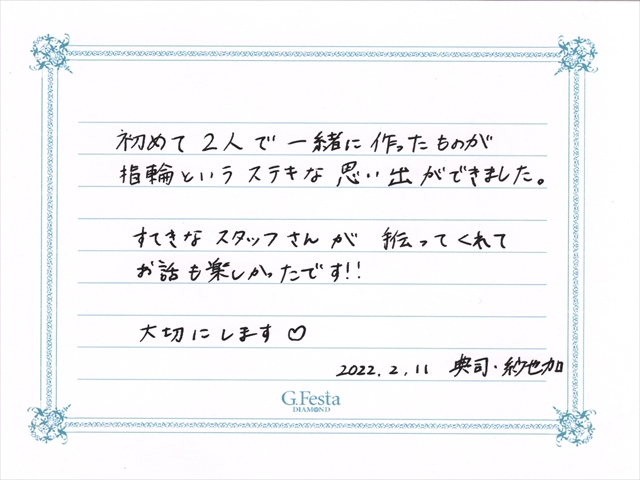 初めて2人で一緒に作ったものが
指輪というステキな思い出ができました。
すてきなスタッフさんが手伝ってくれて
お話も楽しかったです!!
大切にします♡
2022.2.11 典司・紗也加
G.Festa
DIAMOND